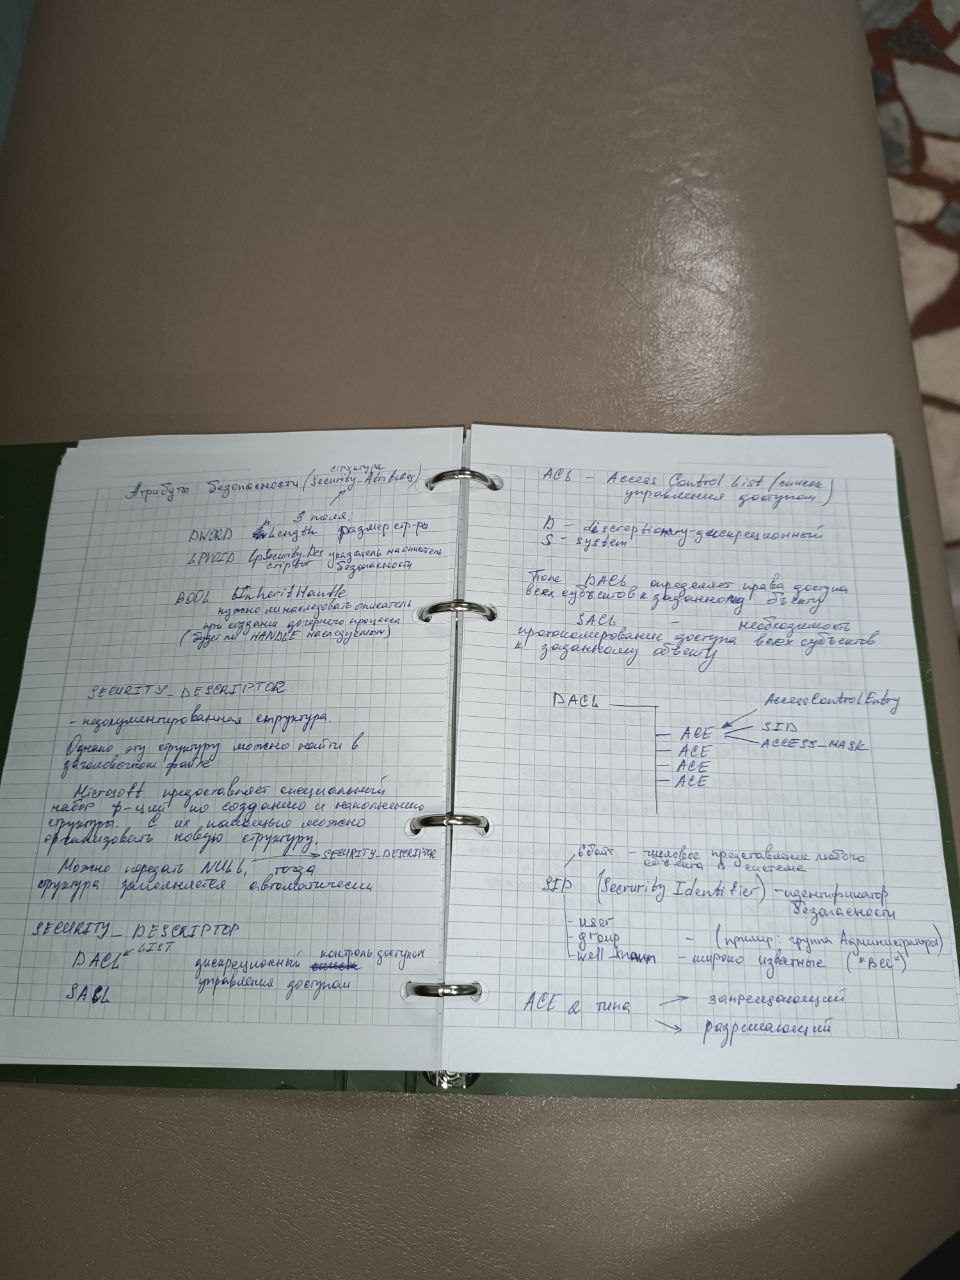 структура
Атрибуты безопасности (Security_Attributes)
3 поля:
DWORD nLength размер стр-ры
LPVOID lpSecurity_Des указатель на описатель
criptor безопасности
BOOL bInheritHandle
нужно ли наследовать описатель
при создании дочернего процесса
(будет ли HANDLE наследуемым)
SECURITY_DESCRIPTOR
- недокументированная структура.
Однако эту структуру можно найти в
заголовочном файле
Microsoft предоставляет специальный
набор ф-ций по созданию и наполнению
структуры. С их помощью можно
организовать новую структуру.
Можно передать NULL, тогда → SECURITY_DESCRIPTOR
структура заполняется автоматически
SECURITY_DESCRIPTOR
LIST
DACL дискреционный список контроль доступом
управления доступом
SACL
ACL - Access Control List (список
управления доступом)
D - discreptionary-дискреционный
S - system
Поле DACL определяет права доступа
всех субъектов к заданному объекту
SACL - необходимость
протоколирование доступа всех субъектов
к заданному объекту
DACL
AccessControlEntry
ACE SID
ACCESS_MASK
ACE
ACE
ACE
6 байт - числовое представление любого
объекта в системе
SID (Security Identifier) - идентификатор
безопасности
- user
- group - (пример: группа Администраторы)
- well known - широко известные ("Все")
ACE 2 типа → запрещающий
→ разрешающий